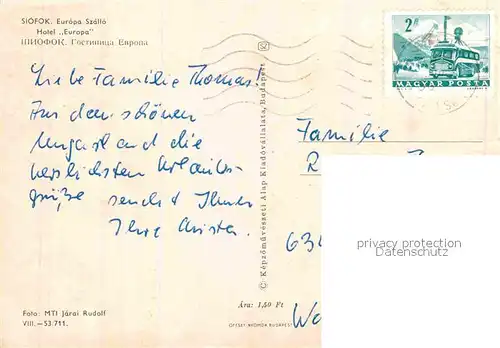 SIÓFOK. Európa Szálló
Hotel „Europa"
ШИОФОК. Гостиница Европа
Liebe Familie Thomas!
Aus dem schönen
Ungarland die
herzlichsten Urlaubs-
grüße sendet Ihnen
Ihre Christa.
Foto: MTI Járai Rudolf
VIII.—53.711.
© Képzőművészeti Alap Kiadóvállalata, Budapest
Ára: 1,50 Ft
OFFSET NYOMDA BUDAPEST
2 Ft
MAGYAR POSTA
Familie
privacy protection
©ansichtskartenversand.com